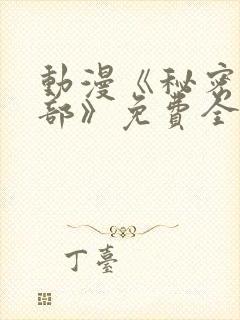 動漫《秘密
部》免費全
丁臺